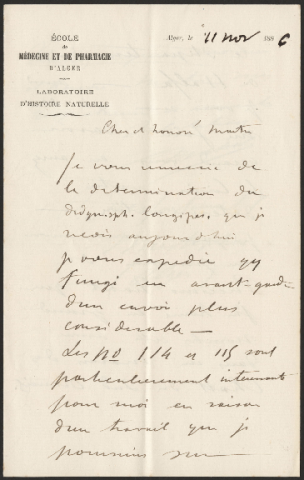 ÉCOLE
de
MÉDECINE ET DE PHARMACIE
D'ALGER
LABORATOIRE
D'HISTOIRE NATURELLE
Alger, le 11 nov 1886
Cher et honoré Maitre
Je vous remercie de
la determination du
Didymosph. longipes, que je
reçois aujourd'hui
Je vous expedie qq
Fungi en avant-garde
d'un envoi plus
considerable —
Les no 114 et 115 sont
particulierement interessants
pour moi en raison
d'un travail que je
poursuis sur